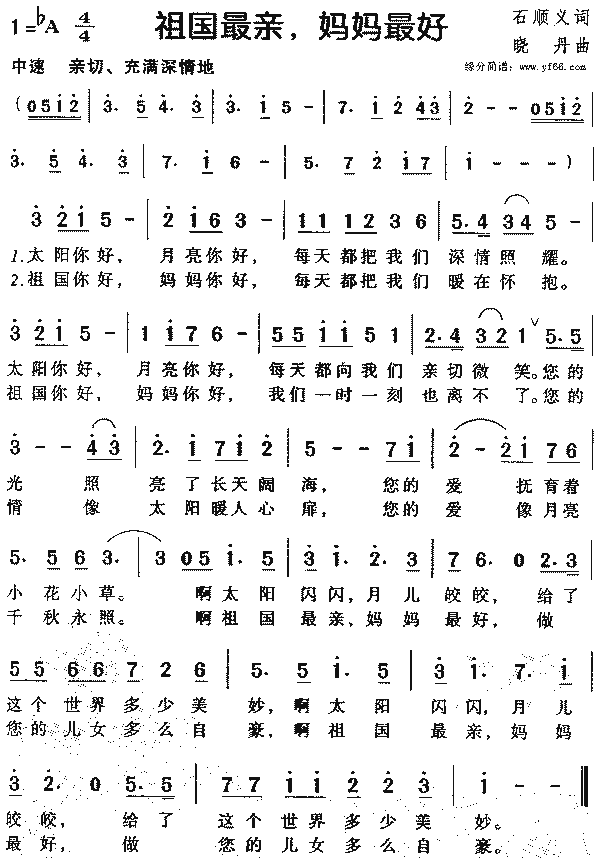 1=♭A 4/4 祖国最亲，妈妈最好 石顺义词
晓 丹曲
中速 亲切、充满深情地 缘分简谱：www.yf66.com
(0512 | 3. 5 4. 3 | 3. 1 5 - | 7. 1 2 43 | 2 - - 0512
3. 5 4. 3 | 7. 1 6 - | 5. 7 2 17 | 1 - - - )
3 21 5 - | 2 16 3 - | 11 12 3 6 | 5. 4 34 5 -
1.太阳你好， 月亮你好， 每天都把我们 深情照 耀。
2.祖国你好， 妈妈你好， 每天都把我们 暖在怀 抱。
3 21 5 - | 1 17 6 - | 55 11 5 1 | 2. 4 32 1 ∨ 5. 5
太阳你好， 月亮你好， 每天都向我们 亲切微 笑。您的
祖国你好， 妈妈你好， 我们一时一刻 也离不 了。您的
3 - - 43 | 2. 1 71 2 | 5 - - 71 | 2 - 21 76
光 照 亮了长天阔 海， 您的 爱 抚育着
情 像 太阳暖人心 扉， 您的 爱 像月亮
5. 5 6 3. | 3 05 1. 5 | 3. 1. 2. 3 | 76. 0 2. 3
小花小草。 啊太阳 闪闪，月儿 皎皎， 给了
千秋永照。 啊祖国 最亲，妈妈 最好， 做
55 66 7 2 6 | 5. 5 1. 5 | 3 1. 7. 1
这个世界多少美 妙，啊太阳 闪闪，月儿
您的儿女多么自 豪，啊祖国 最亲，妈妈
3 2. 0 5. 5 | 77 11 2 2 3 | 1 - - ‖
皎皎， 给了 这个世界多少美 妙。
最好， 做 您的儿女多么自 豪。